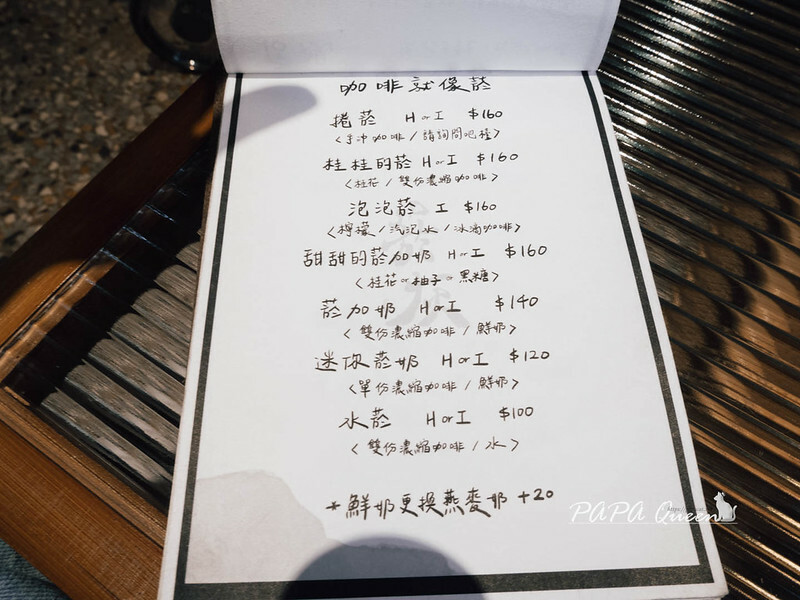 咖啡就像菸
捲菸 H or I $160
<手沖咖啡/請詢問吧檯>
桂桂的菸 H or I $160
<桂花/雙份濃縮咖啡>
泡泡菸 I $160
<檸檬/汽泡水/冰滴咖啡>
甜甜的菸加奶 H or I $160
<桂花 or 柚子 or 黑糖>
菸加奶 H or I $140
<雙份濃縮咖啡/鮮奶>
迷你菸奶 H or I $120
<單份濃縮咖啡/鮮奶>
水菸 H or I $100
<雙份濃縮咖啡/水>
*鮮奶更換燕麥奶 +20
PAPA Queen